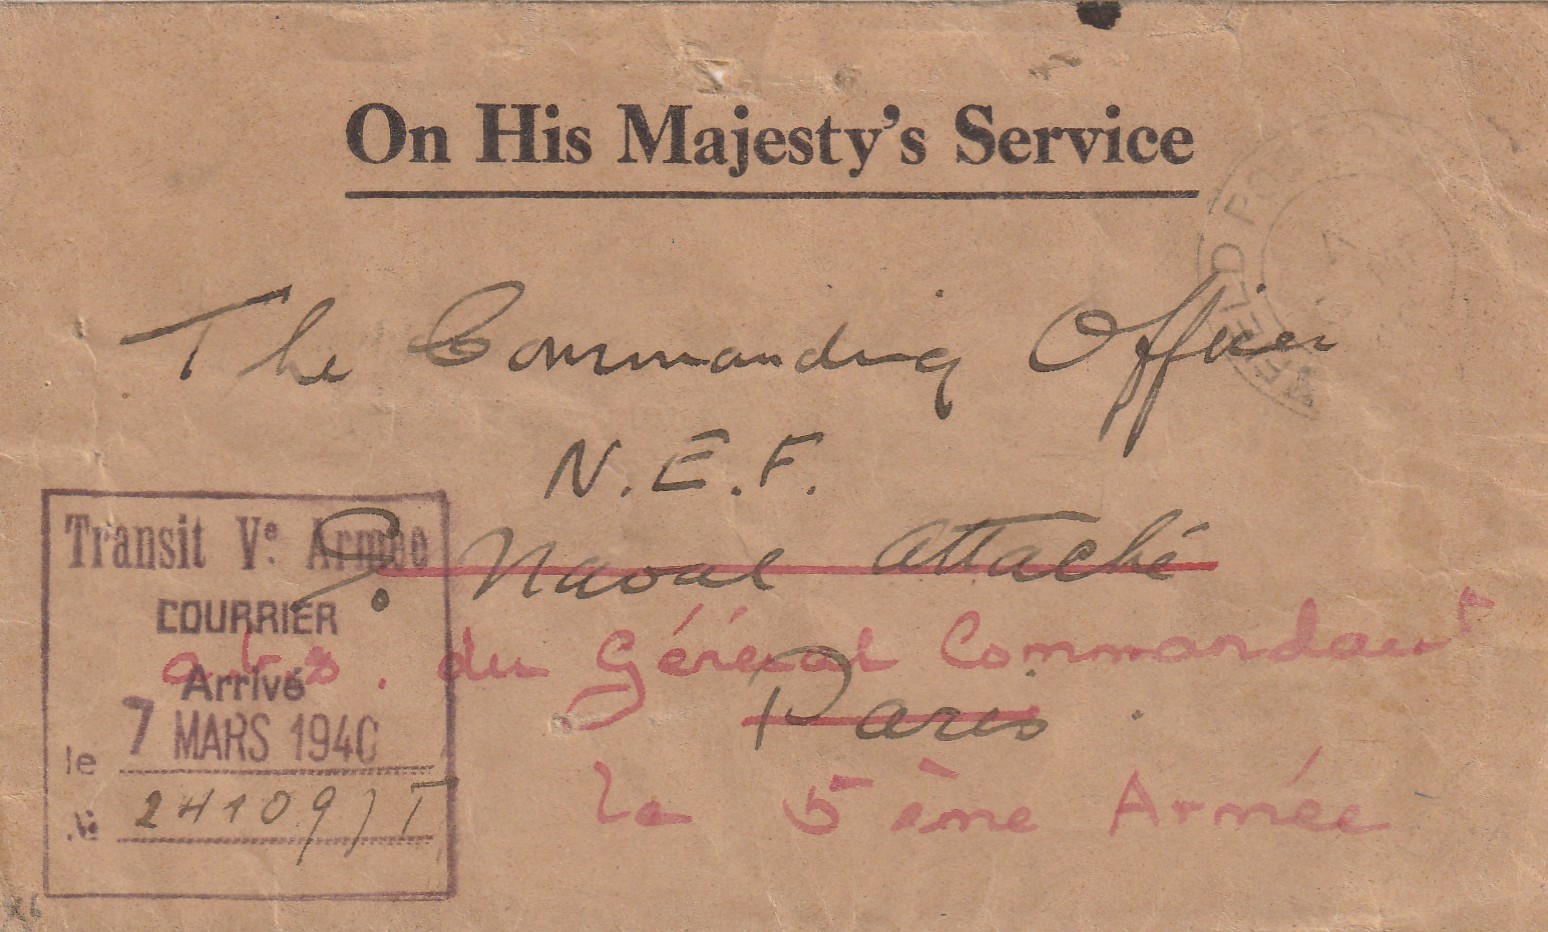 On His Majesty's Service
The Commanding Officer
N.E.F.
Naval Attaché
du Général Commandant
Paris
la 5ème Armée
Transit Ve Armée
COURRIER
Arrivé
le 7 MARS 1940
№ 24109/T
FIELD PO
7